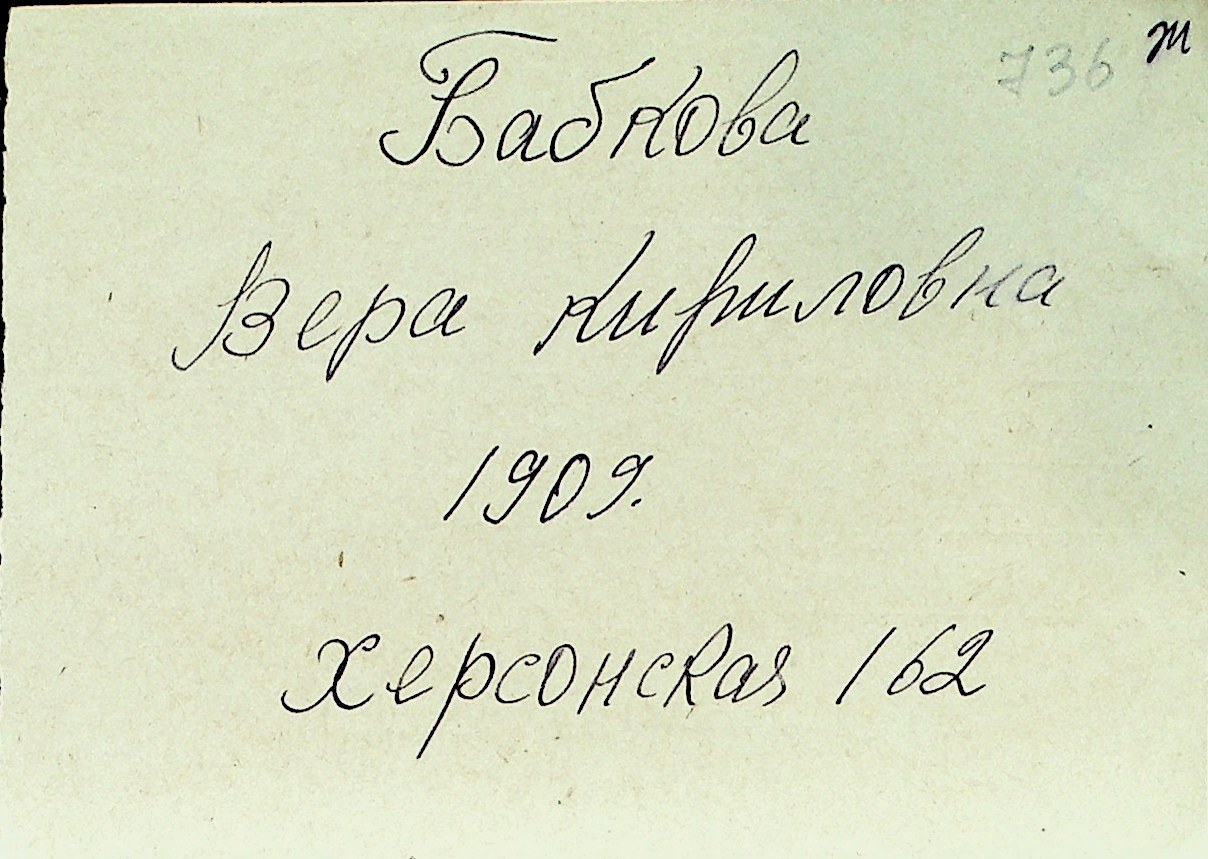 736 т
Бабкова
Вера Кириловна
1909.
Херсонская 162